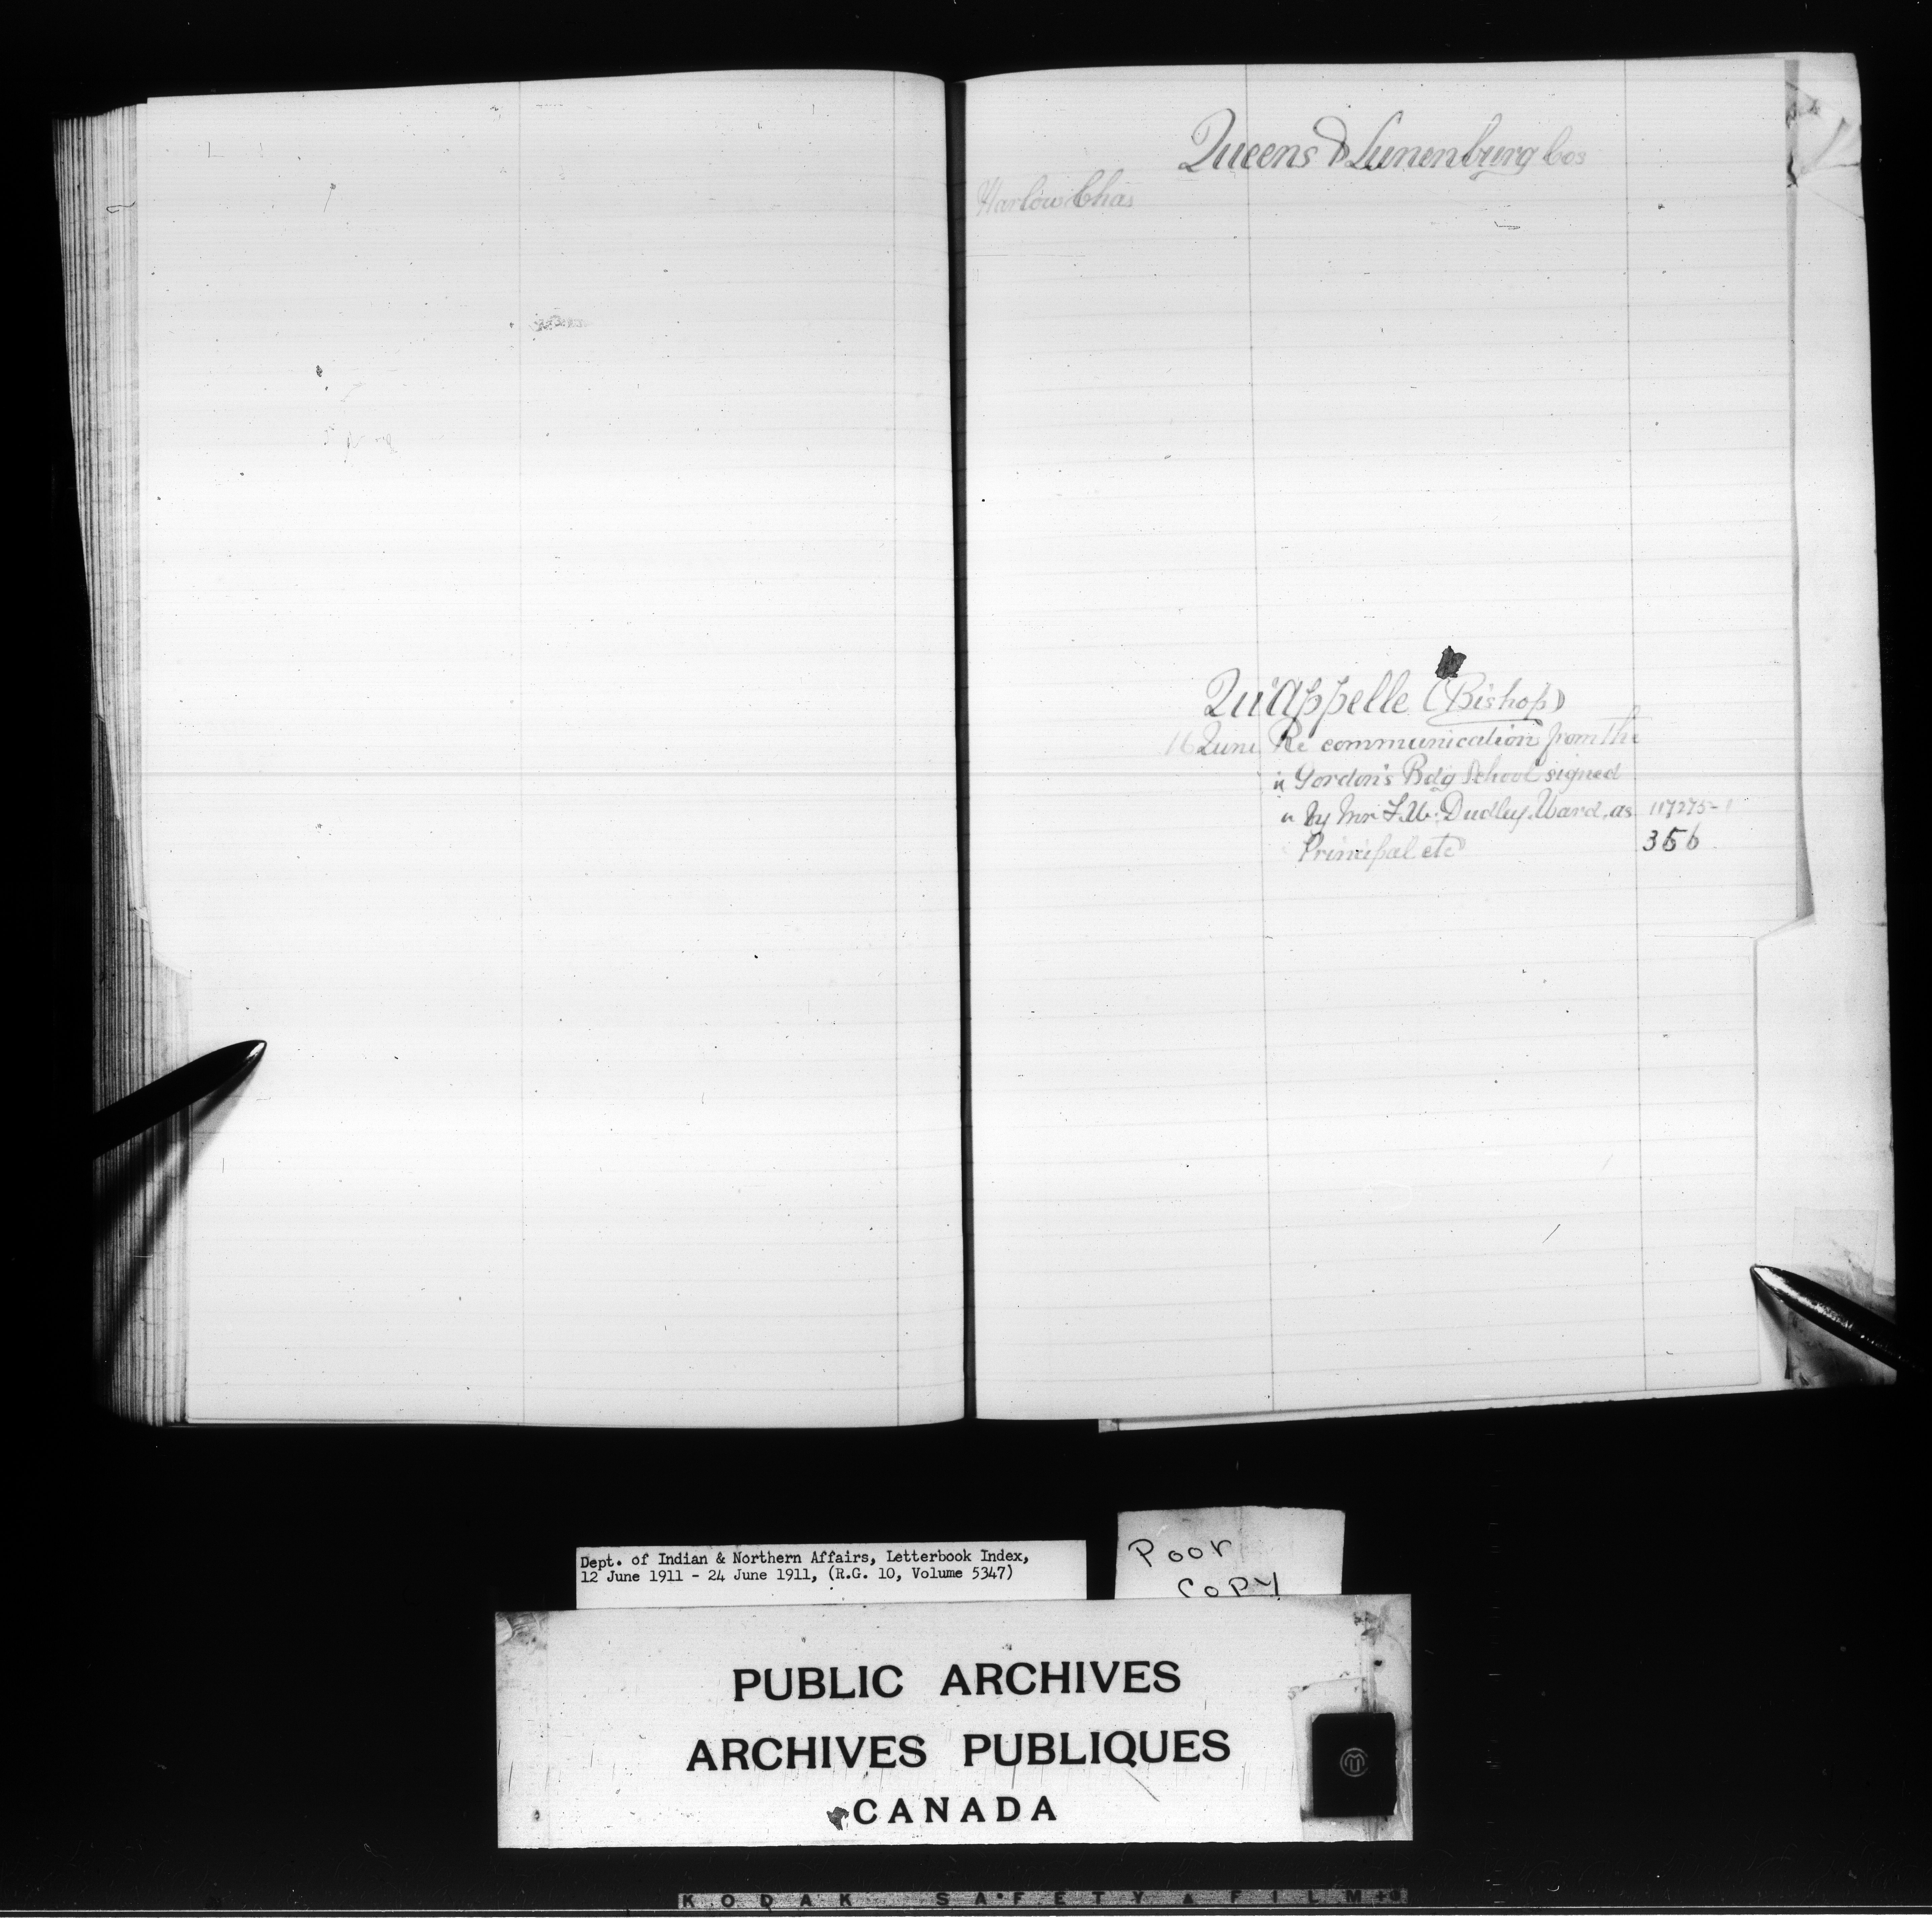 Queens & Lunenburg Cos
Harlow Chas
Qu'Appelle (Bishop)
16 June Re communication from the
" Gordon's Bdg School signed
" by Mr F.W. Dudley Ward, as 117275-1
Principal etc 356
Dept. of Indian & Northern Affairs, Letterbook Index,
12 June 1911 - 24 June 1911, (R.G. 10, Volume 5347)
Poor
Copy
PUBLIC ARCHIVES
ARCHIVES PUBLIQUES
CANADA
KODAK SAFETY FILM